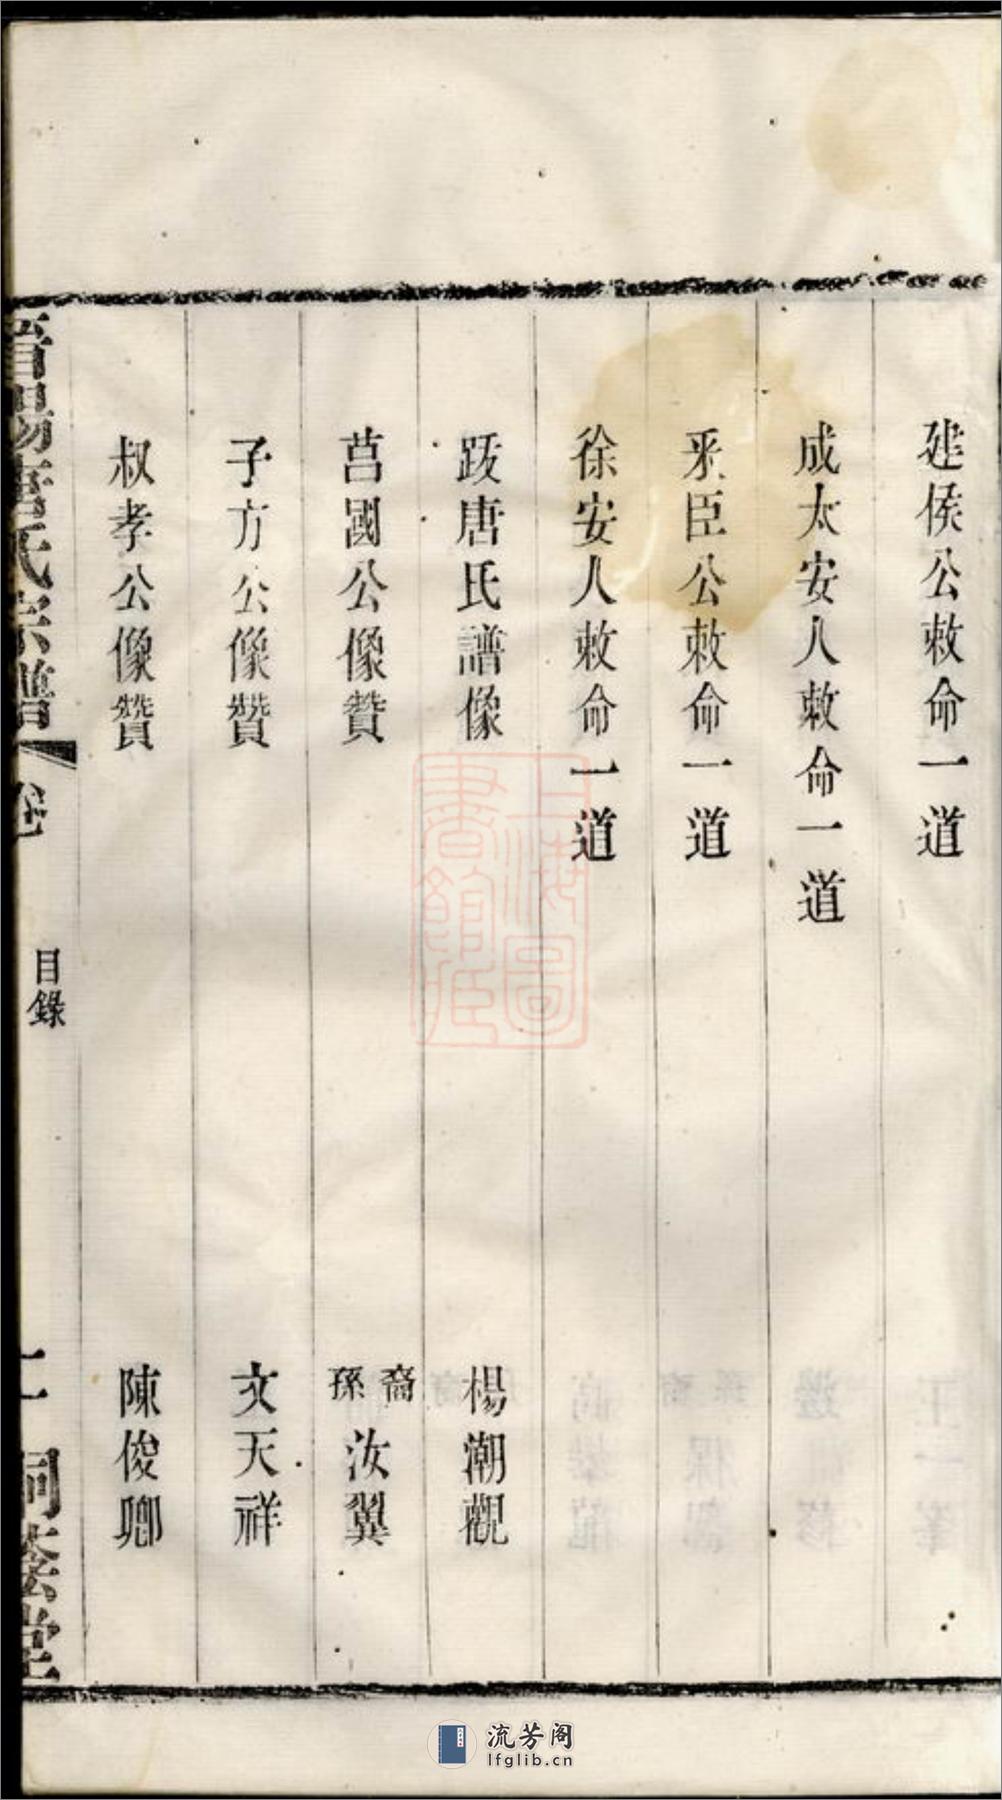 建侯公敕命一道
成太安人敕命一道
釆臣公敕命一道
徐安人敕命一道
跋唐氏譜像 楊潮觀
莒國公像贊 裔孫汝翼
子方公像贊 文天祥
叔孝公像贊 陳俊卿
晋陽唐氏宗譜 卷 目錄 二 桐蔭堂
上海圖書館藏
流芳阁
lfglib.cn